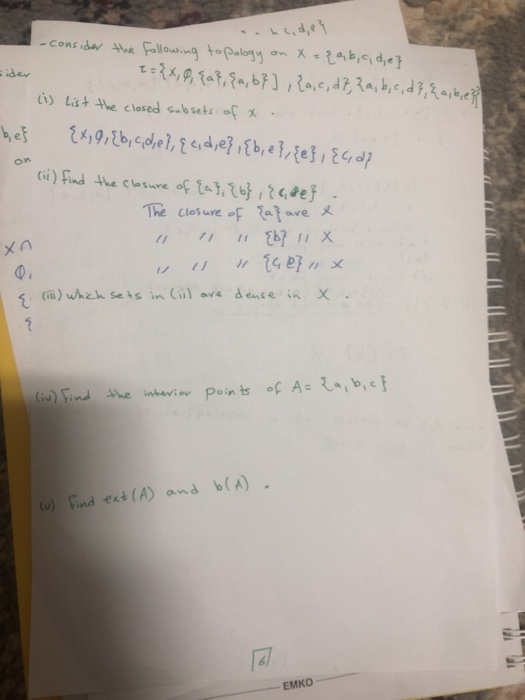 h c, d, e}
- Consider the following topology on X = {a, b, c, d, e}
sider
τ = {X, ∅, {a}, {a, b}], {a, c, d}, {a, b, c, d}, {a, b, e}}
(i) List the closed subsets of X .
b, e}
{X, ∅, {b, c, d, e}, {c, d, e}, {b, e}, {e}, {c, d}
on
(ii) Find the closure of {a}, {b}, {c, e} .
The closure of {a} are X
" " " {b} " X
X ∩
∅,
" " " {c, e} " X
{ (iii) which sets in (ii) are dense in X .
{
(iv) Find the interior points of A = {a, b, c}
(v) Find ext(A) and b(A) .
6
EMKO